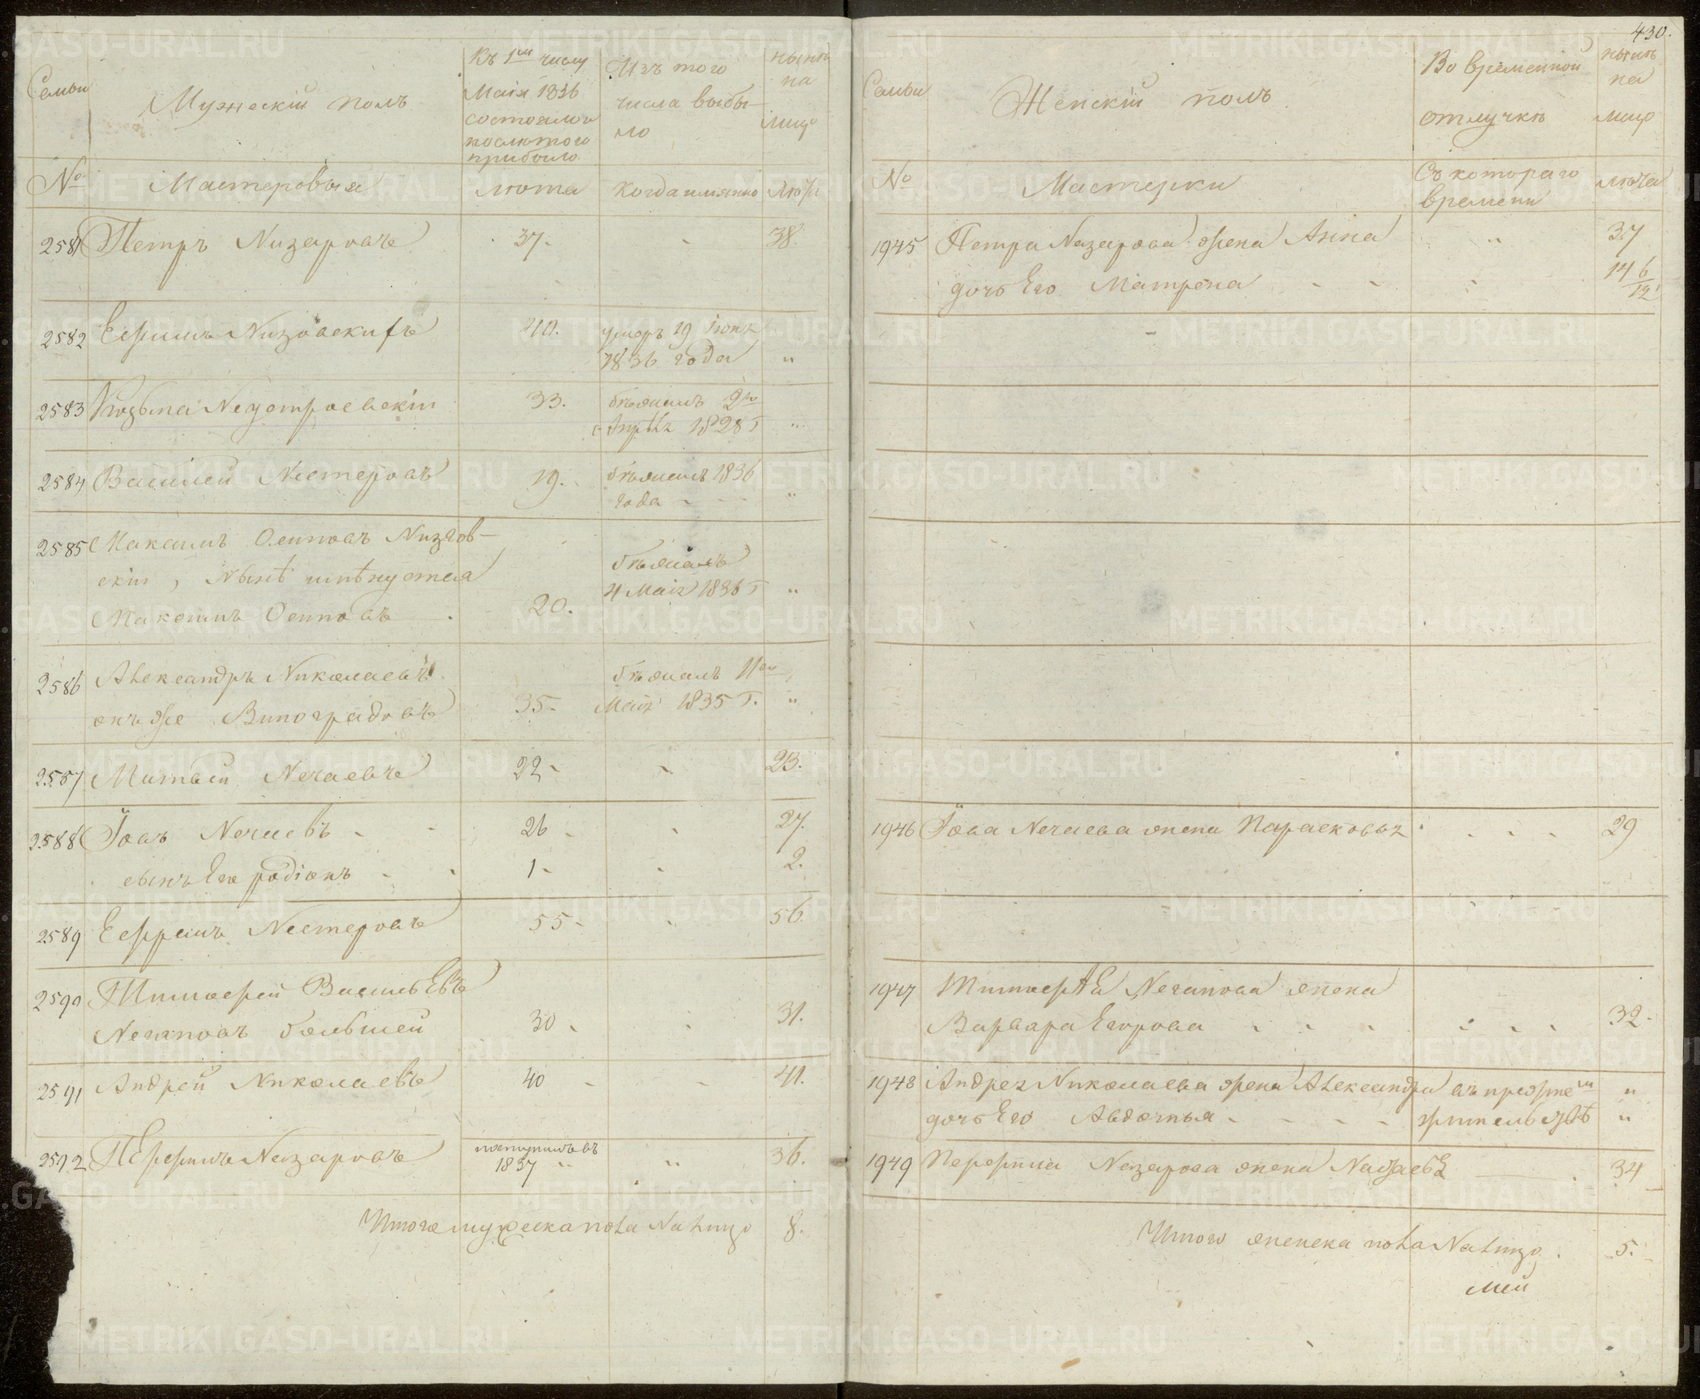 430.
Семьи
Мужескій полъ
Въ 1е число
Маія 1836
состояло и
после того
прибыло
Изъ того
числа выбы
ло
ныне
на
лицо
№
Мастеровыя
лѣта
когда имянно
лѣта
2581 Петръ Назаровъ 37. 38.
2582 Ефимъ Низовскихъ 40. умеръ 19 Іюня
1836 года "
2583 Козьма 33. бѣжалъ 2го
Апрѣля 1828 Г "
2584 Василей Нестеровъ 19. бѣжалъ 1836
года "
2585 Максимъ Осиповъ Низов-
скій, Нынѣ имѣнуется бѣжалъ
Максимъ Осиповъ 20. 4 Маія 1836 Г "
2586 Александръ Николаевъ бѣжалъ 11го
онъ же Виноградовъ 35. Маія 1835 Г. "
2587 Матвей Нечаевъ 22 23.
2588 Іовъ Нечаевъ 26 27.
сынъ Его родіонъ 1 2.
2589 Ефремъ Нестеровъ 55 56
2590 Тимофей Васильевъ
большей 30 31.
2591 Андрей Николаевъ 40 41.
2592 Перфилъ Назаровъ поступилъ въ
1837 " " 36.
Итого мужеска пола На лицо 8.
Семьи
Женскій полъ
Во временной
отлучкѣ
ныне
на
лицо
№
Мастерки
Съ котораго
времени
лѣта
1945 Петра Назарова жена Анна " 37
дочь Его Матрена 14 6/12
1946 Іова Нечаева жена Парасковья 29
1947 Тимофея жена
Варвара Егорова 32
1948 Андрея Николаева жена Александра въ прежнем "
дочь Его Авдотья жительствѣ "
1949 Перфила Назарова жена 34
Итого женска пола На лицо 5.
METRIKI.GASO-URAL.RU